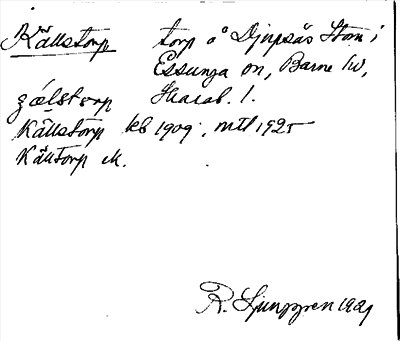 Källstorp torp å Djupsås Stom i
Essunga sn, Barne hd,
zælstorp Skarab. l.
Källstorp kb 1909, mtl 1925
Källtorp ek.
R. Ljunggren 1929